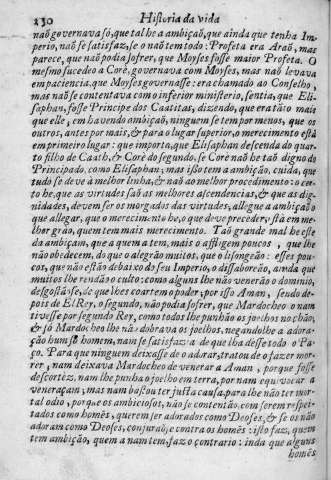 230 Historia da vida
naõ governava só, que tal he a ambiçaõ, que ainda que tenha Im-
perio, naõ se satisfaz, se o naõ tem todo: Profeta era Araõ, mas
parece, que naõ podia sofrer, que Moyses fosse maior Profeta. O
mesmo sucedeo a Corè, governava com Moyses, mas naõ levava
em paciencia, que Moyses governasse: era chamado ao Conselho,
mas naõ se contentava com inferior ministerio, sentia, que Eli-
saphan, fosse Principe dos Caatitas, dizendo, que era taõ o mais
que elle, em havendo ambiçaõ, ninguem se tem por menos, que os
outros, antes por mais, & para o lugar superior, o merecimento està
em primeiro lugar: que importa, que Elisaphan descenda do quar-
to filho de Caath, & Corè do segundo, se Corè naõ he taõ digno do
Principado, como Elisaphan; mas isso tem a ambiçaõ, cuida, que
tudo se deve à melhor linha, & naõ ao melhor procedimento: o cer-
to he, que as virtudes saõ as melhores ascendencias, & que as dig-
nidades, devem ser os morgados das virtudes, allegue a ambiçaõ o
que allegar, que o merecimento he, o que deve preceder, & està em me-
lhor grào, quem tem mais merecimento. Taõ grande mal he este
da ambiçam, que a quem a tem, mais o affligem poucos, que lhe
naõ obedecem, do que o alegraõ muitos, que o lisongeaõ: esses pou-
cos, que naõ estaõ debaixo do seu Imperio, o dissaboreaõ, ainda que
muitos lhe rendaõ o culto: como alguns lhe naõ venerão o dominio,
desgosta-se, de que lhes coartem o poder; por isso Aman, sendo de-
pois de ElRey, o segundo, naõ podia sofrer, que Mardocheo o nam
tivesse por segundo Rey, como todos lhe punhaõ os joelhos no chaõ,
& só Mardocheo lhe naõ dobrava os joelhos, negandolhe a adora-
çaõ hum só homem, nam se satisfazia de que lha desse todo o Pa-
ço. Para que ninguem deixasse de o adorar, tratou de o fazer mor-
rer, nam deixava Mardocheo de venerar a Aman, porque fosse
descortez, nam lhe punha o joelho em terra, por nam equivocar a
veneraçam; mas nam bastou ter justa causa, para lhe naõ ter mor-
tal odio, porque os ambiciosos, naõ se contentaõ, com serem respei-
tados como homẽs, querem ser adorados como Deoses, & se os naõ
adoram como Deoses, conjuraõse contra os homẽs: isso faz, quem
tem ambiçaõ, quem a nam tem, faz o contrario: inda que alguns
homẽs